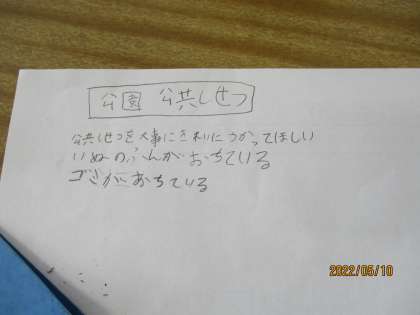 公園 公共しせつ
公共しせつを大事にきれいにつかってほしい
いぬのふんがおちている
ゴミがおちている
2022/05/10